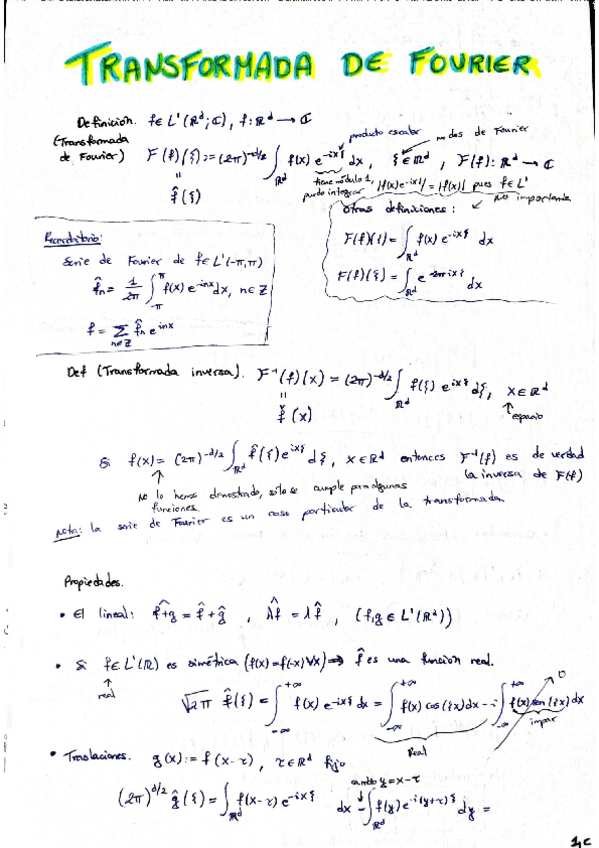 TRANSFORMADA DE FOURIER
Definición. f∈L¹(ℝᵈ;ℂ), f:ℝᵈ→ℂ
(Transformada de Fourier) F(f)(ξ):=(2π)^(-d/2) ∫_ℝᵈ f(x) e^(-ixξ) dx, ξ∈ℝᵈ, F(f):ℝᵈ→ℂ
producto escalar
modos de Fourier
= f̂(ξ)
tiene módulo 1, puedo integrar
|f(x)e^(-ixξ)| = |f(x)| pues f∈L¹
No importante
Otras definiciones:
F(f)(ξ) = ∫_ℝᵈ f(x) e^(-ixξ) dx
F(f)(ξ) = ∫_ℝᵈ e^(-2πixξ) dx
Recordatorio:
Serie de Fourier de f∈L¹(-π,π)
f̂ₙ = 1/2π ∫_-π^π f(x) e^(-inx) dx, n∈ℤ
f = Σ_n∈ℤ f̂ₙ e^(inx)
Def (Transformada inversa). F⁻¹(f)(x) = (2π)^(-d/2) ∫_ℝᵈ f(ξ) e^(ixξ) dξ, x∈ℝᵈ
= f̌(x)
espacio
Si f(x) = (2π)^(-d/2) ∫_ℝᵈ f̂(ξ) e^(ixξ) dξ, x∈ℝᵈ entonces F⁻¹(f) es de verdad
la inversa de F(f)
No lo hemos demostrado, sólo se cumple para algunas
funciones.
Nota: la serie de Fourier es un caso particular de la transformada.
Propiedades.
• El lineal: f+g^ = f̂+ĝ, λf^ = λf̂, (f,g∈L¹(ℝᵈ))
• Si f∈L¹(ℝ) es simétrica (f(x)=f(-x)∀x) ⟹ f̂ es una función real.
real
√2π f̂(ξ) = ∫_-∞^+∞ f(x) e^(-ixξ) dx = ∫_-∞^+∞ f(x) cos(ξx) dx - i ∫_-∞^+∞ f(x) sen(ξx) dx
0
Real
impar
• Traslaciones. g(x):= f(x-τ), τ∈ℝᵈ fijo
cambio y=x-τ
(2π)^(d/2) ĝ(ξ) = ∫_ℝᵈ f(x-τ) e^(-ixξ) dx = ∫_ℝᵈ f(y) e^(-i(y+τ)ξ) dy =